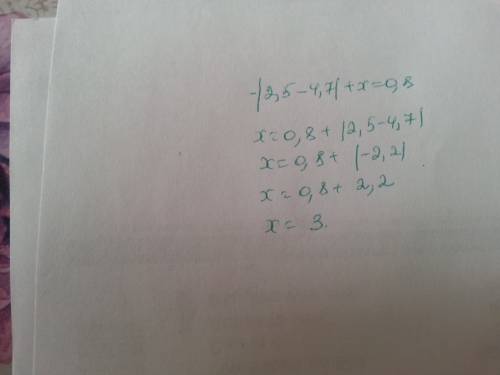 -|2,5-4,7|+x=0,8
x=0,8+|2,5-4,7|
x=0,8+|-2,2|
x=0,8+2,2
x=3.